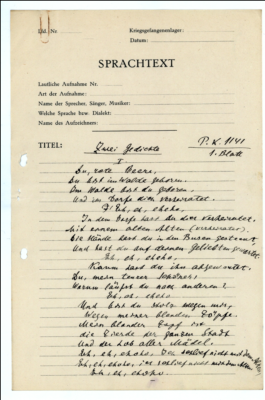 Lfd. Nr.
Kriegsgefangenenlager:
Datum:
SPRACHTEXT
Lautliche Aufnahme Nr.
Art der Aufnahme:
Name der Sprecher, Sänger, Musiker:
Welche Sprache bzw. Dialekt:
Name des Aufzeichners:
TITEL: Zwei Gedichte
P.K. 1141
1. Blatt
I
Du, rote Beere,
Du bist im Walde geboren.
Im Walde bist du geboren
Und im Dorfe dich verheiratet.
Eh, eh, ehoho.
In dem Dorfe hast du dich verheiratet,
Mit einem alten
Die Hände hast du in den Busen gesteckt
Und hast du auf deinen Geliebten gewartet
Eh, eh, ehoho.
Kaum hast du ihn abgewartet.
Du, mein teurer
Warum läufst du nach anderen?
Eh, eh, ehoho
Und bist du stolz wegen mir,
Wegen meiner blonden Zöpfe.
Mein blonder Zopf ist
die Zierde der ganzen Stadt
Und der Lob aller Mädel.
Eh, eh, ehoho.
Eh, eh, ehoho,
Eh, eh, ehoho.